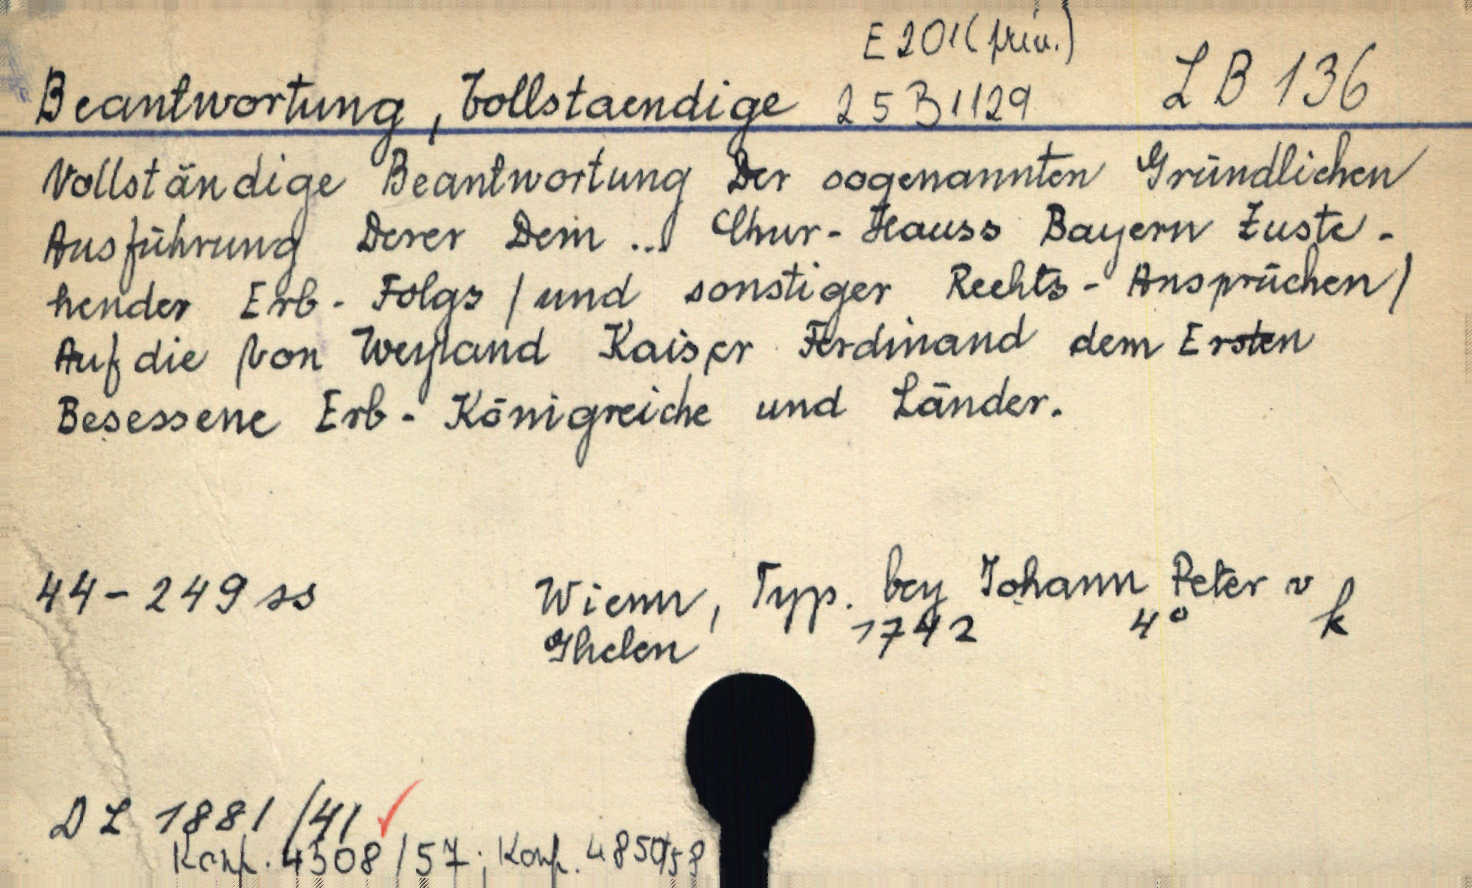 E 201 (priv.)
Beantwortung, Vollstaendige 25 B 1129 LB 136
Vollständige Beantwortung Der sogenannten Gründlichen
Ausführung Derer Dem ... Chur-Hauss Bayern Zuste-
hender Erb-Folgs / und sonstiger Rechts-Ansprüchen /
Auf die Von Weyland Kaiser Ferdinand dem Ersten
Besessene Erb-Königreiche und Länder.
44-249 ss Wienn, Typ. bey Johann Peter v
Ghelen 1742 4° k
DL 1881/41
Konf. 4308/57; Konf. 4850/58